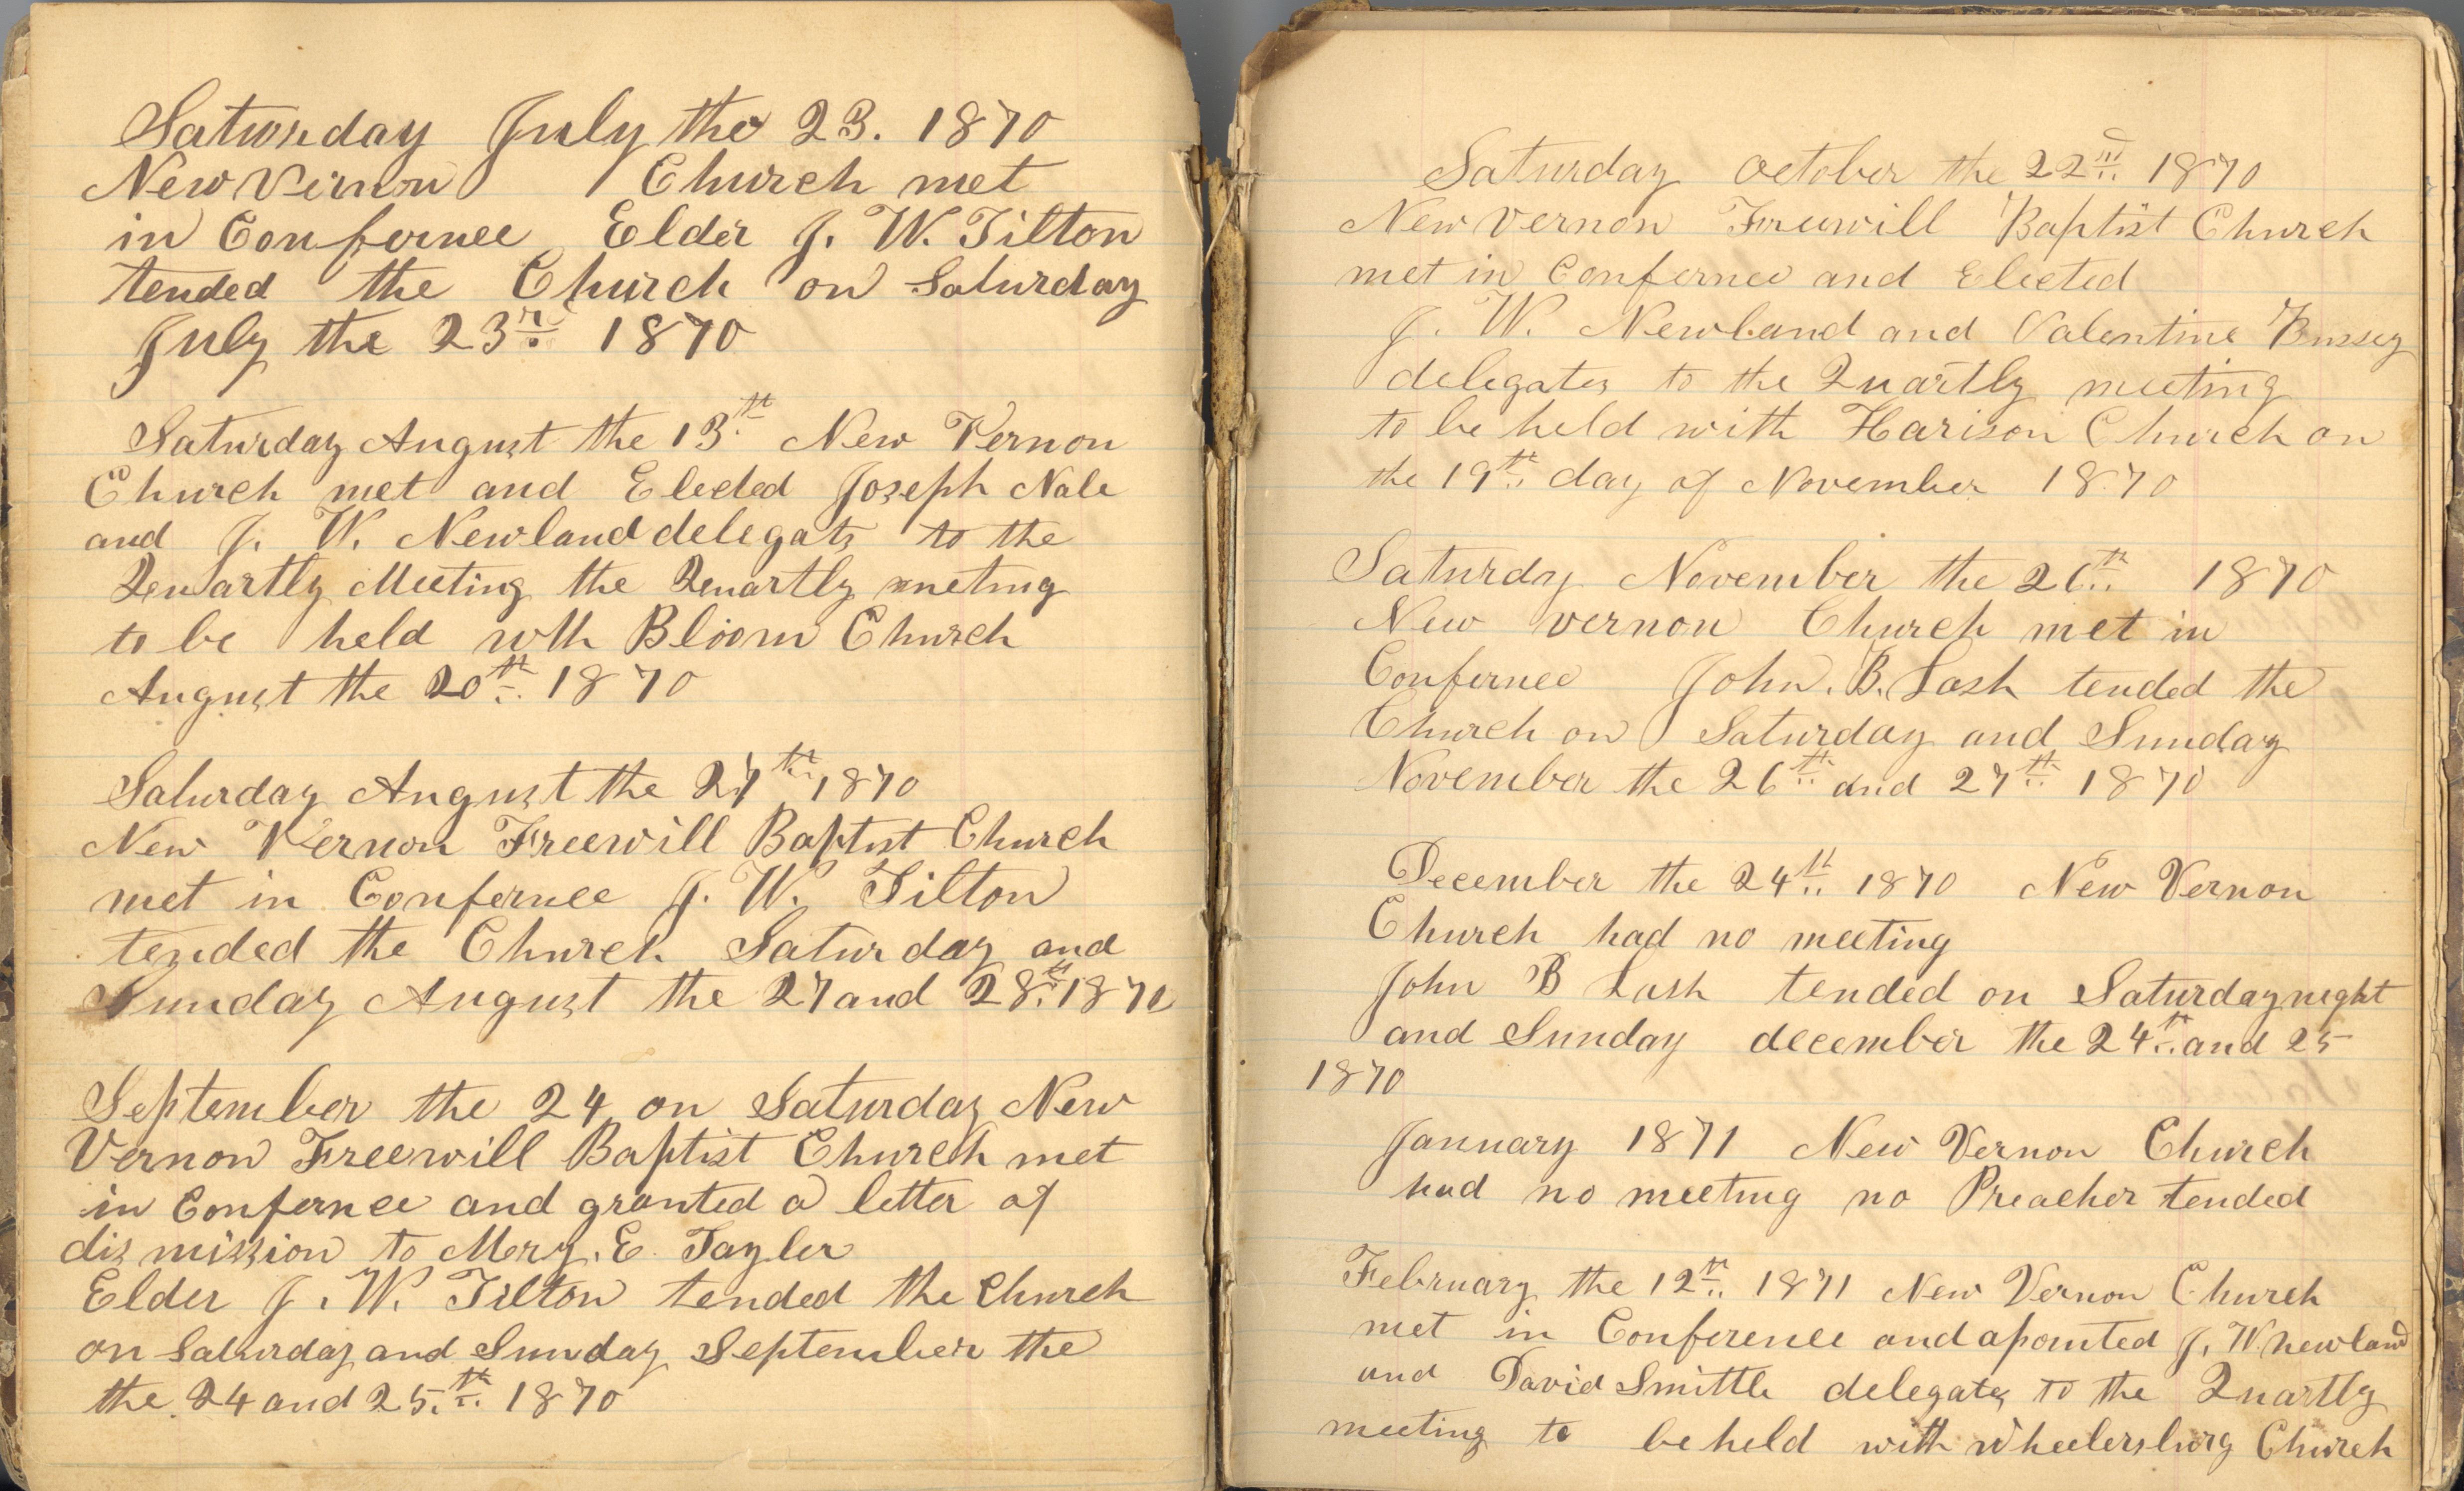 Saturday July the 23. 1870
New Vernon Church met
in Confernce Elder J. W. Tilton
tended the Church on Saturday
July the 23rd 1870
Saturday August the 13th New Vernon
Church met and Elected Joseph Nale
and J. W. Newland delegats to the
Quartly Meeting the Quartly meting
to be held wth Bloom Church
August the 20th 1870
Saturday August the 27th 1870
New Vernon Freewill Baptist Church
met in Confernce J. W. Tilton
tended the Church Saturday and
Sunday August the 27 and 28th 1870
September the 24 on Saturday New
Vernon Freewill Baptist Church met
in Confernce and granted a letter of
dismission to Mery. E. Tayler
Elder J. W. Tilton tended the Church
on Saturday and Sunday September the
the 24 and 25.th 1870
Saturday October the 22nd 1870
New Vernon Freewill Baptist Church
met in Confernce and Elected
J. W. Newland and Valentine Bussey
delegates to the Quartly meeting
to be held with Harison Church on
the 19th day of November 1870
Saturdy November the 26th 1870
New vernon Church met in
Confernce John. B. Lash tended the
Church on Saturday and Sunday
November the 26th and 27th 1870
December the 24th 1870 New Vernon
Church had no meeting
John B Lash tended on Saturday night
and Sunday december the 24th and 25
1870
January 1871 New Vernon Church
had no meeting no Preacher tended
February the 12th 1871 New Vernon Church
met in Conference and apointed J. W. newland
and David Smittle delegates to the Quartly
meeting to be held with Wheelersburg Church